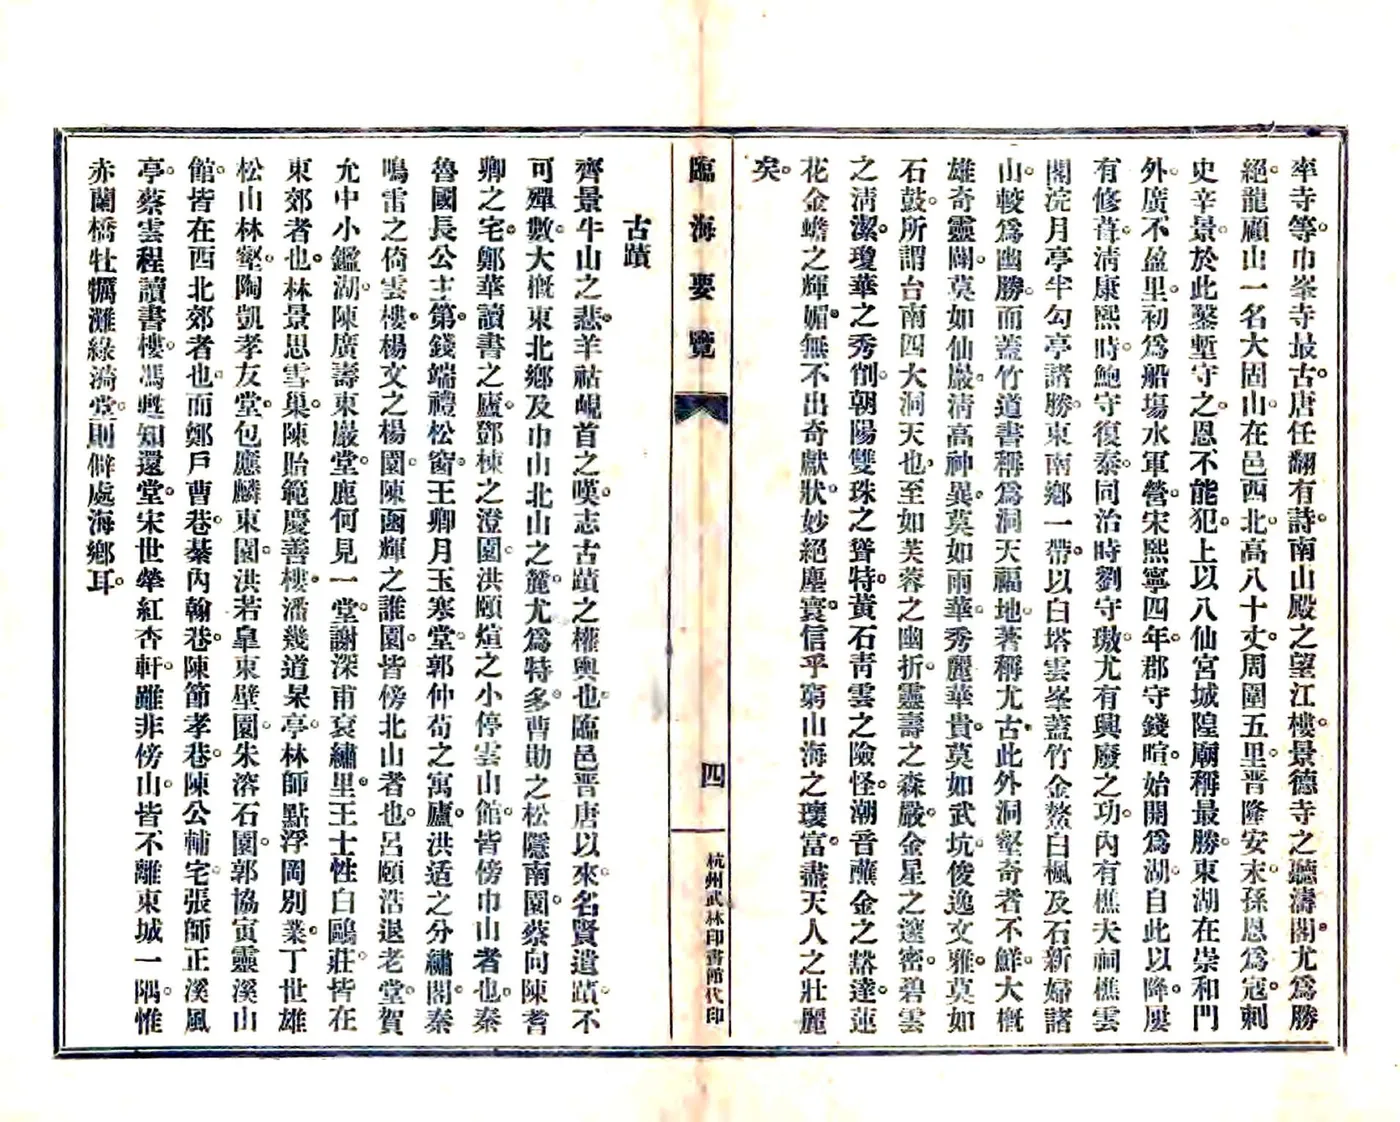 率寺等。巾峯寺最古。唐任翻有詩。南山殿之望江樓。景德寺之聽濤閣。尤爲勝
絕。龍顧山一名大固山。在邑西北。高八十丈。周圍五里。晋隆安末。孫恩爲寇。刺
史辛景。於此鑿塹守之。恩不能犯。上以八仙宮城隍廟稱最勝。東湖在崇和門
外。廣不盈里。初爲船場水軍營。宋熙寧四年。郡守錢暄。始開爲湖。自此以降。屢
有修葺。淸康熙時。鮑守復泰。同治時劉守璈。尤有興廢之功。內有樵夫祠樵雲
閣浣月亭半勾亭諸勝。東南鄉一帶。以白塔雲峯蓋竹金鰲白楓及石新婦諸
山。較爲幽勝。而蓋竹道書稱爲洞天福地。著稱尤古。此外洞壑奇者不鮮。大槪
雄奇靈闢。莫如仙巖。淸高神異。莫如雨華。秀麗華貴。莫如武坑。俊逸文雅。莫如
石鼓。所謂台南四大洞天也。至如芙蓉之幽折。靈壽之森嚴。金星之邃密。碧雲
之淸潔。瓊華之秀削。朝陽雙珠之聳特。黃石靑雲之險怪。潮音蘸金之豁達。蓮
花金蟾之輝媚。無不出奇獻狀。妙絕塵寰。信乎窮山海之瓌富。盡天人之壯麗
矣。
臨海要覽
四
杭州武林印書館代印
古蹟
齊景牛山之悲。羊祜峴首之嘆。志古蹟之權輿也。臨邑晋唐以來。名賢遺蹟。不
可殫數。大槪東北鄉及巾山北山之麓。尤爲特多。曹勛之松隱南園。蔡向陳耆
卿之宅。鄭華讀書之廬。鄧棟之澄園。洪頤煊之小停雲山館。皆傍巾山者也。秦
魯國長公主第。錢端禮松窗。王卿月玉寒堂。郭仲荀之寓廬。洪适之分繡閣。秦
鳴雷之倚雲樓。楊文之楊園。陳函輝之誰園。皆傍北山者也。呂頤浩退老堂。賀
允中小鑑湖。陳廣壽東巖堂。鹿何見一堂。謝深甫袞繡里。王士性白鷗莊。皆在
東郊者也。林景思雪巢。陳貽範慶善樓。潘幾道杲亭。林師點浮岡別業。丁世雄
松山林壑。陶凱孝友堂。包應麟東園。洪若皐東壁園。朱溶石園。郭協寅靈溪山
館。皆在西北郊者也。而鄭戶曹巷。綦內翰巷。陳節孝巷。陳公輔宅。張師正溪風
亭。蔡雲程讀書樓。馮甦知還堂。宋世犖紅杏軒。雖非傍山。皆不離東城一隅。惟
赤蘭橋牡犡灘綠漪堂。則僻處海鄉耳。